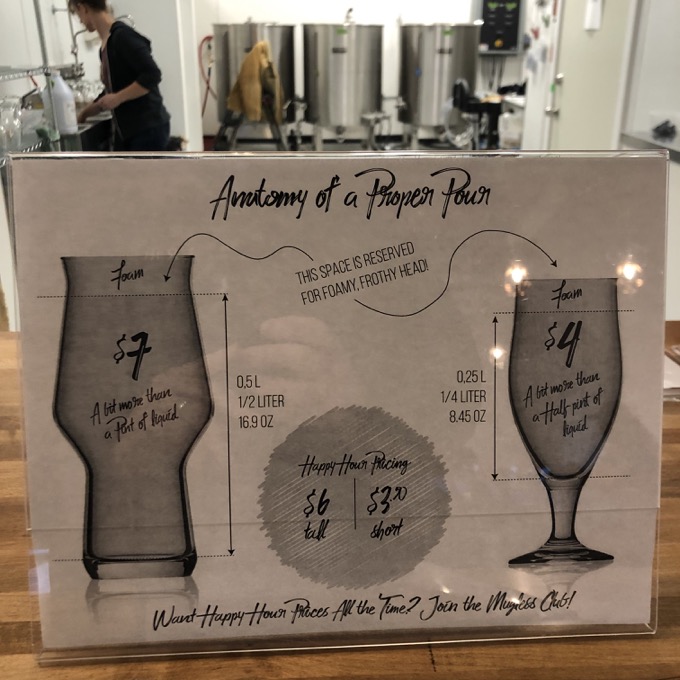 Anatomy of a Proper Pour
THIS SPACE IS RESERVED
FOR FOAMY, FROTHY HEAD!
Foam
$7
A bit more than
a Pint of liquid
0,5 L
1/2 LITER
16.9 OZ
Foam
$4
A bit more than
a Half-pint of
liquid
0,25 L
1/4 LITER
8.45 OZ
Happy Hour Pricing
$6
tall
$3.50
short
Want Happy Hour Prices All the Time? Join the Mugless Club!